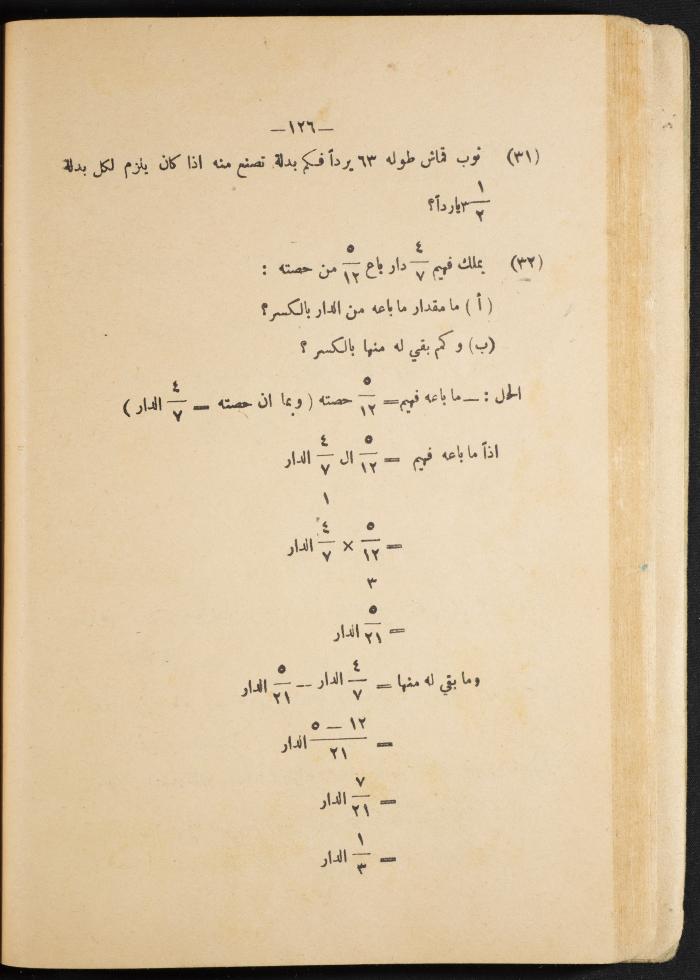 —١٢٦—
(٣١) ثوب قماش طوله ٦٣ يرداً فكم بدلة تصنع منه اذا كان يلزم لكل بدلة
٣ ١/٢ يارداً؟
(٣٢) يملك فهيم ٤/٧ دار باع ٥/١٢ من حصته :
( أ ) ما مقدار ما باعه من الدار بالكسر؟
(ب) وكم بقي له منها بالكسر ؟
الحل : — ما باعه فهيم = ٥/١٢ حصته ( وبما ان حصته = ٤/٧ الدار )
اذاً ما باعه فهيم = ٥/١٢ ال ٤/٧ الدار
١
= ٥/١٢ × ٤/٧ الدار
٣
= ٥/٢١ الدار
وما بقي له منها = ٤/٧ الدار — ٥/٢١ الدار
= ١٢ — ٥/٢١ الدار
= ٧/٢١ الدار
= ١/٣ الدار